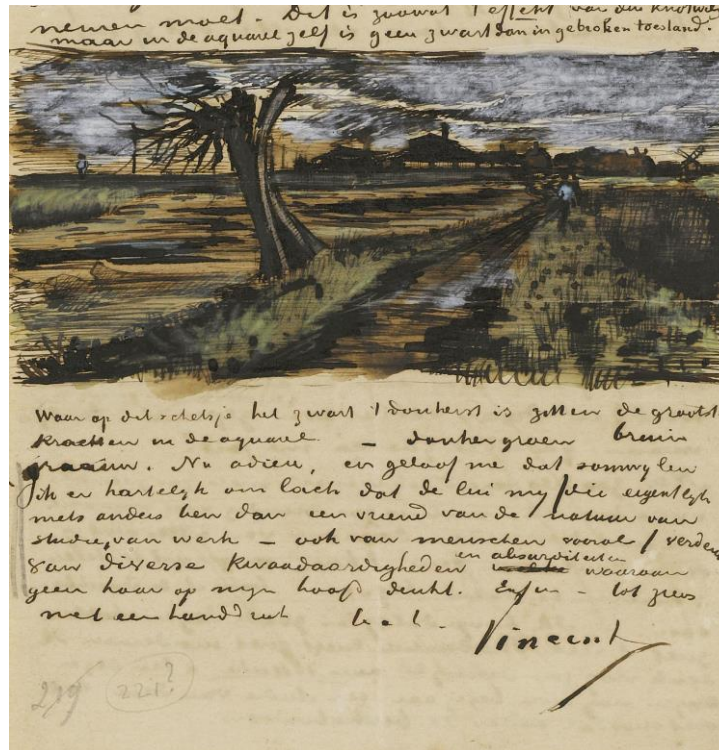 nemen moet. Dit is zoowat 't effekt van den knotwilg
maar in de aquarel zelf is geen zwart dan in gebroken toestand.
Waar op dit schetsje het zwart 't donkerst is zitten de grootst
krachten in de aquarel – donkergroen bruin
graauw. Nu adieu, en geloof me dat somwylen
ik er hartelyk om lach dat de lui my (die eigentlyk
niets anders ben dan een vriend van de natuur van
studie, van werk – ook van menschen vooral) verden
van diverse kwaadaardigheden en absurditeiten waaraan
geen haar op myn hoofd denkt. Enfin – tot ziens
met een handdruk t. à t.
Vincent
219 221?